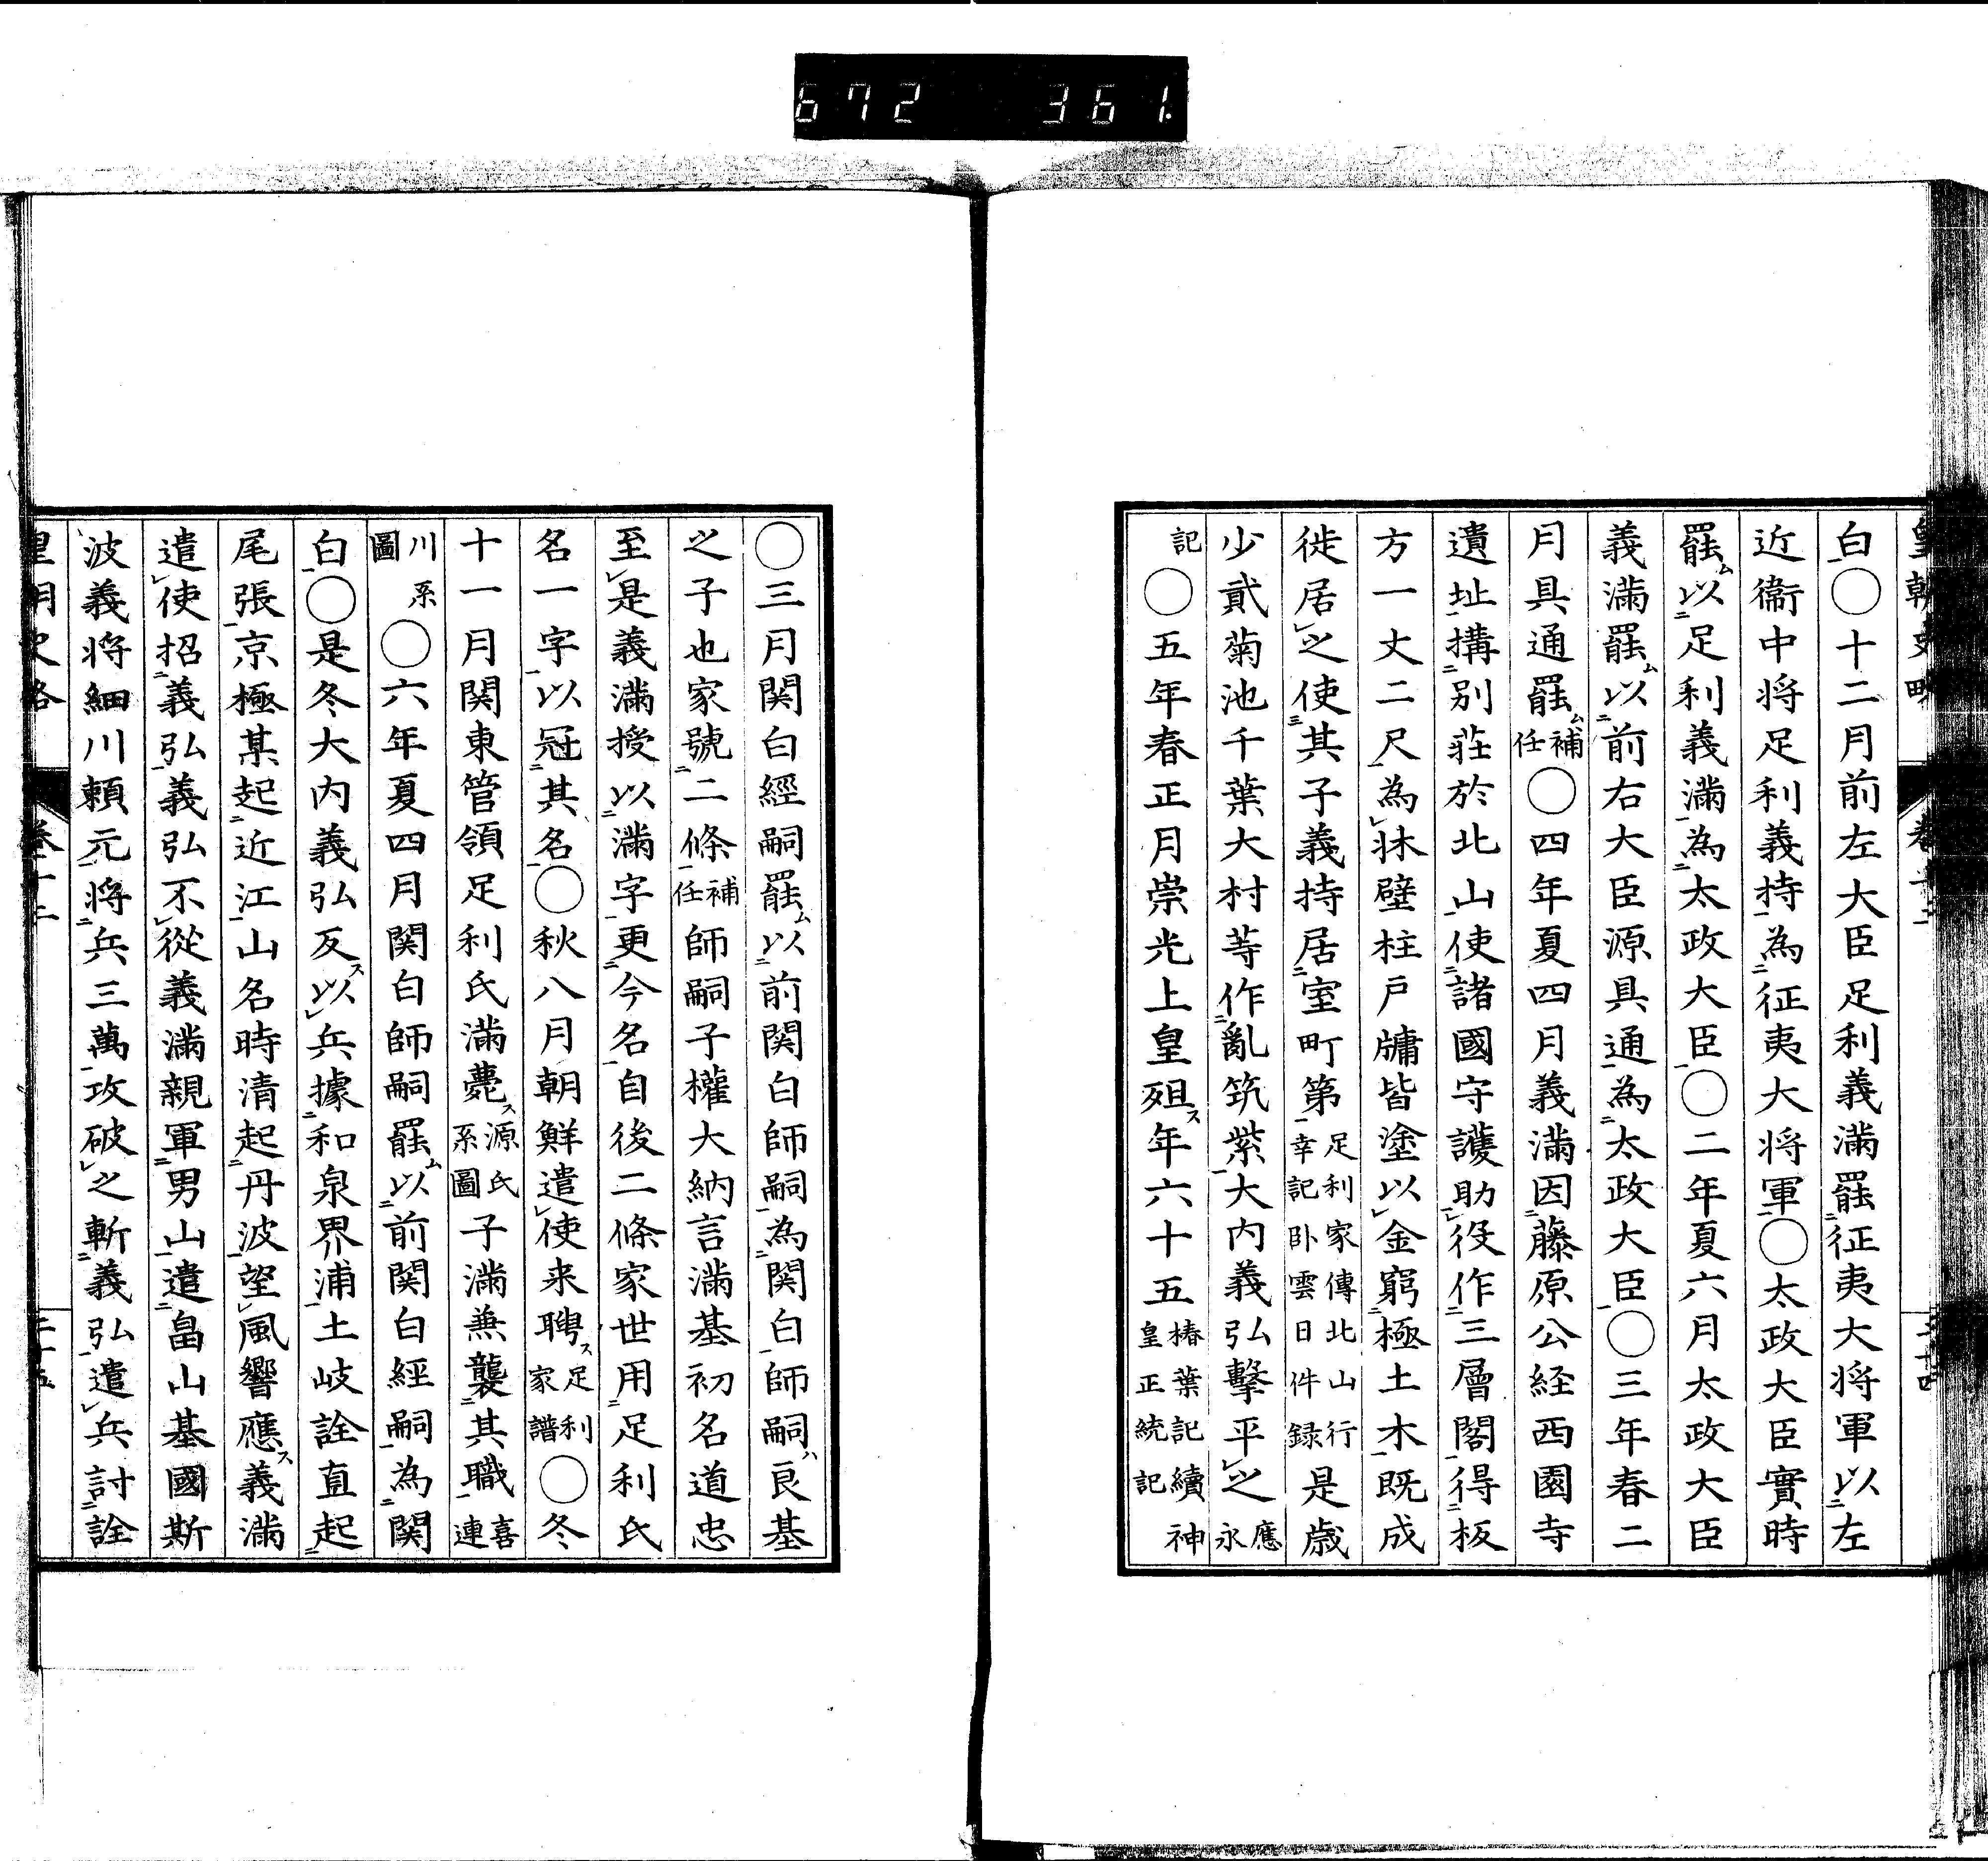 672 361.
皇朝史略 卷十二
白〇十二月前左大臣足利義滿罷征夷大将軍以左
近衞中将足利義持為征夷大将軍〇太政大臣實時
罷ム以足利義滿為太政大臣〇二年夏六月太政大臣
義滿罷ム以前右大臣源具通為太政大臣〇三年春二
月具通罷ム補任〇四年夏四月義滿因藤原公経西園寺
遺址搆別莊於北山使諸國守護助役作三層閣得板
方一丈二尺為牀壁柱戸牗皆塗以金窮極土木既成
徙居之使其子義持居室町第足利家傳北山行幸記卧雲日件録是歳
少貳菊池千葉大村等作亂筑紫大内義弘擊平之應永
記〇五年春正月崇光上皇殂ス年六十五椿葉記續神皇正統記
〇三月関白經嗣罷ム以前関白師嗣為関白師嗣ハ良基
之子也家號二條補任師嗣子權大納言滿基初名道忠
至是義滿授以滿字更今名自後二條家世用足利氏
名一字以冠其名〇秋八月朝鮮遣使来聘ス足利家譜〇冬
十一月関東管領足利氏滿薨ス源氏系圖子滿兼襲其職喜連
川系圖〇六年夏四月関白師嗣罷ム以前関白經嗣為関
白〇是冬大内義弘反ス以兵據和泉界浦土岐詮直起
尾張京極某起近江山名時清起丹波望風響應ス義滿
遣使招義弘義弘不從義滿親軍男山遣畠山基國斯
波義将細川頼元将兵三萬攻破之斬義弘遣兵討詮